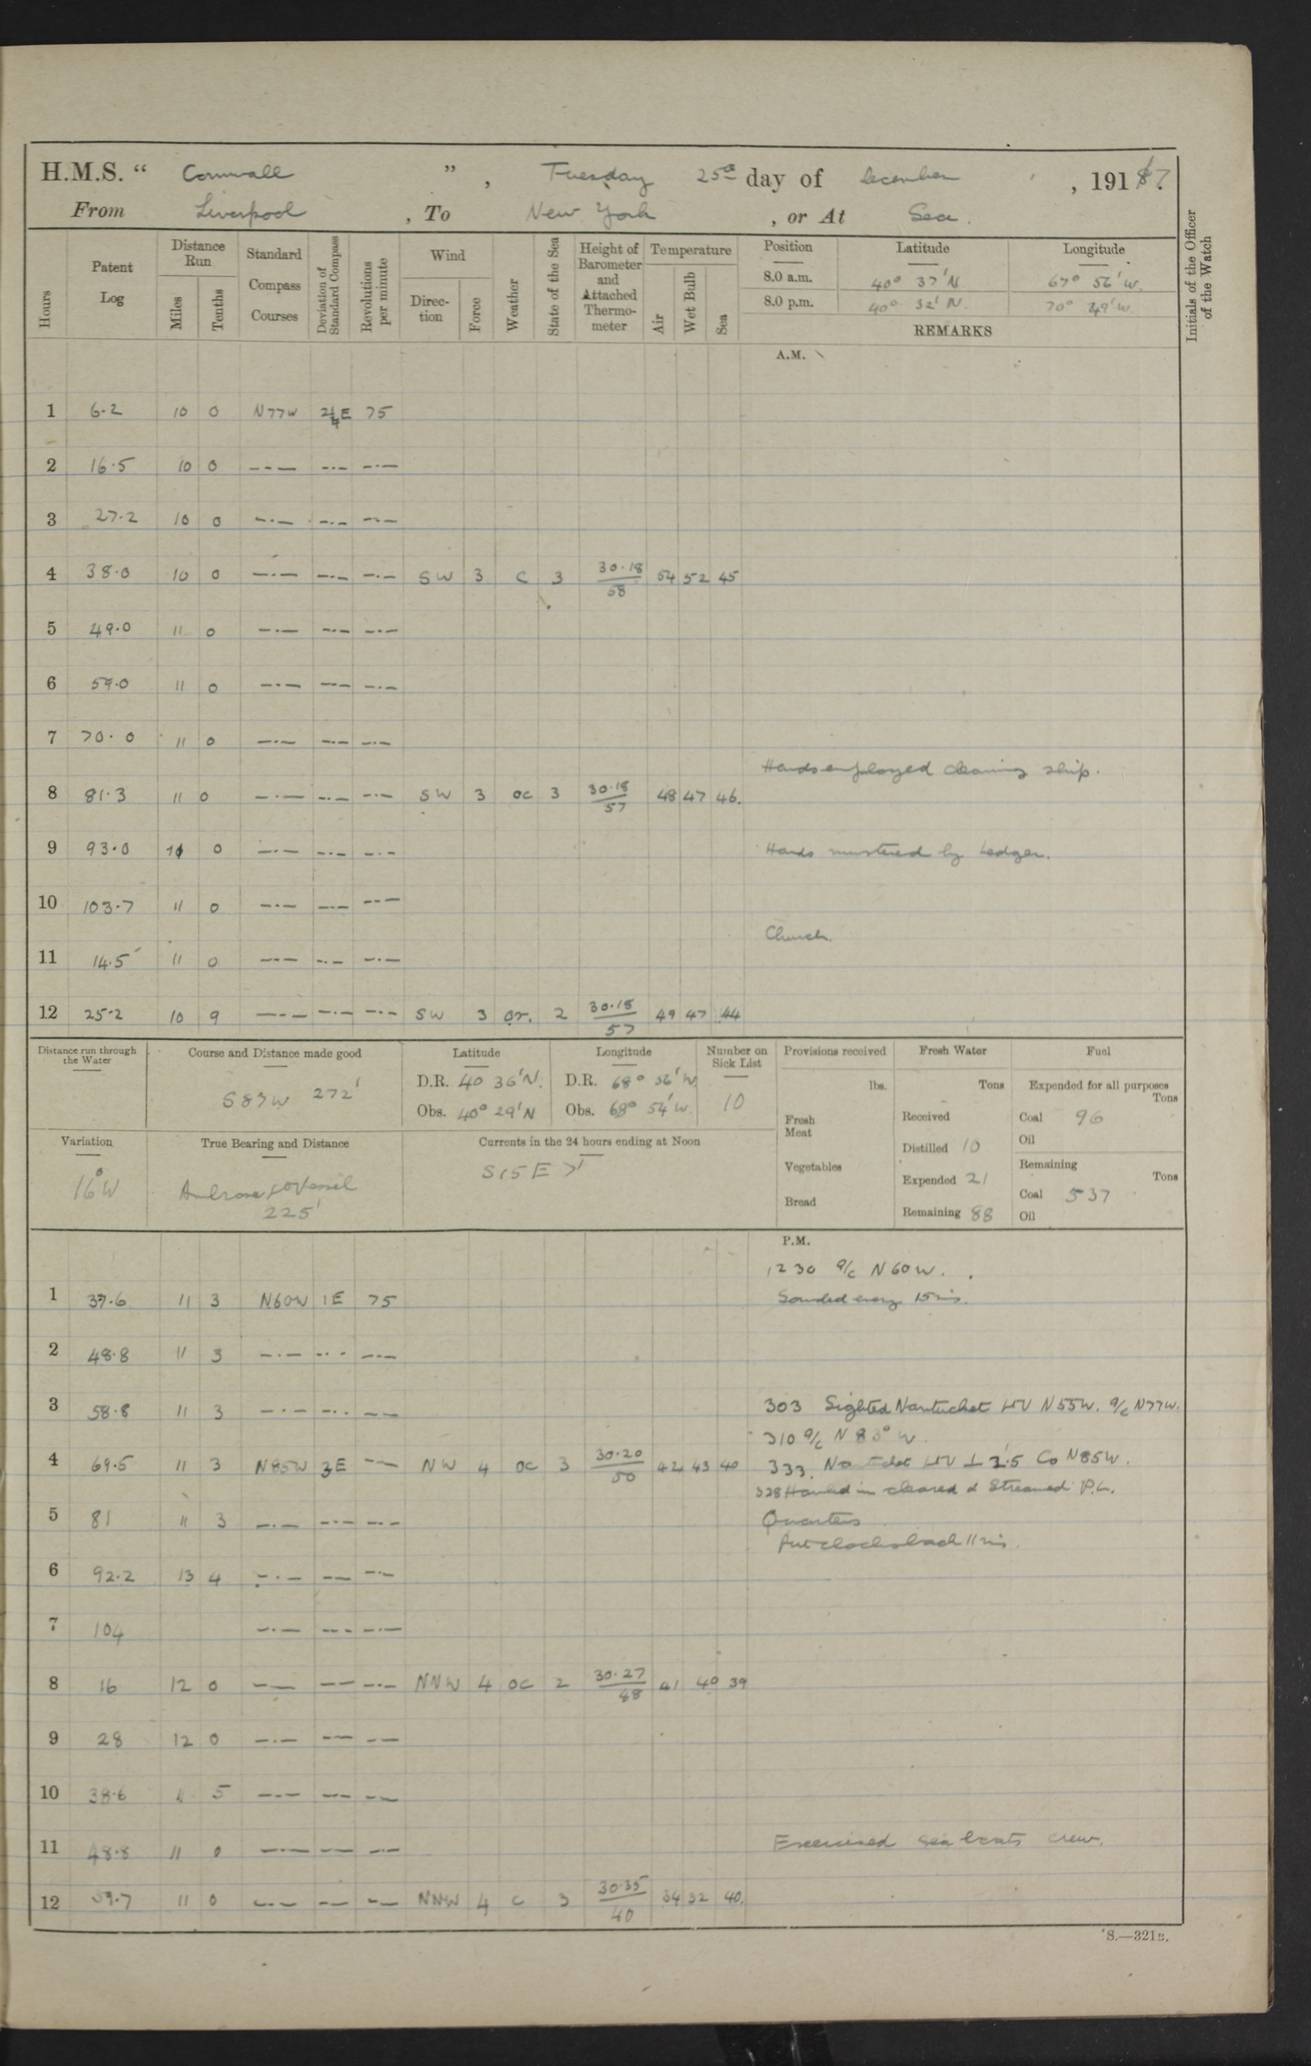 H.M.S. “ Cornwall ” , Tuesday 25th day of December , 1917
From Liverpool , To New York , or At Sea.
Hours Patent Log Distance Run Miles Tenths Standard Compass Courses Deviation of Standard Compass Revolutions per minute Wind Direc-tion Force Weather State of the Sea Height of Barometer and Attached Thermo-meter Temperature Air Wet Bulb Sea Position Latitude Longitude Initials of the Officer of the Watch
8.0 a.m. 40° 37' N 67° 56' W.
8.0 p.m. 40° 32' N. 70° 49' W.
REMARKS
A.M.
1 6.2 10 0 N77W E 75
2 16.5 10 0 –·– –·– –·–
3 27.2 10 0 –·– –·– –·–
4 38.0 10 0 –·– –·– –·– SW 3 C 3 30.18/58 54 52 45
5 49.0 11 0 –·– –·– –·–
6 59.0 11 0 –·– –·– –·–
7 70.0 11 0 –·– –·– –·–
Hands employed cleaning ship.
8 81.3 11 0 –·– –·– –·– SW 3 oc 3 30.18/57 48 47 46.
9 93.0 0 –·– –·– –·– Hands mustered by Ledger.
10 103.7 11 0 –·– –·– –·–
Church.
11 14.5 11 0 –·– –·– –·–
12 25.2 10 9 –·– –·– –·– SW 3 or. 2 30.18/57 49 47 44
Distance run through the Water Course and Distance made good Latitude Longitude Number on Sick List Provisions received Fresh Water Fuel
S 83 W 272' D.R. 40 36' N. D.R. 68° 36' W lbs. Tons Expended for all purposes Tons
Obs. 40° 29' N Obs. 68° 54' W. 10 Fresh Meat Received Coal 96
Distilled 10 Oil
Variation True Bearing and Distance Currents in the 24 hours ending at Noon Vegetables Expended 21 Remaining Tons
16° W Ambrose Lt Vessel 225' S 15 E Bread Remaining 88 Coal 537
Oil
P.M.
1230 a/c N60W.
1 37.6 11 3 N60W 1E 75 Sounded every 15 mins.
2 48.8 11 3 –·– –·– –·–
3 58.8 11 3 –·– –·– –·– 303 Sighted Nantucket LtV N55W. a/c N77W.
310 a/c N 83° W
4 69.5 11 3 N85W 3E –·– NW 4 oc 3 30.20/50 42 43 40 333. Nantucket LtV ⊥ 3.5 Co N85W.
328 Hauled in cleared & Streamed P.L.
5 81 11 3 –·– –·– –·– Quarters
Put clocks back 11 mins.
6 92.2 13 4 –·– –·– –·–
7 104 –·– –·– –·–
8 16 12 0 –·– –·– –·– NNW 4 oc 2 30.27/48 41 40 39
9 28 12 0 –·– –·– –·–
10 38.6 5 –·– –·– –·–
11 48.8 11 0 –·– –·– –·– Exercised sea boats crew.
12 59.7 11 0 –·– –·– –·– NNW 4 C 3 30.35/40 34 32 40.
S.—321B.